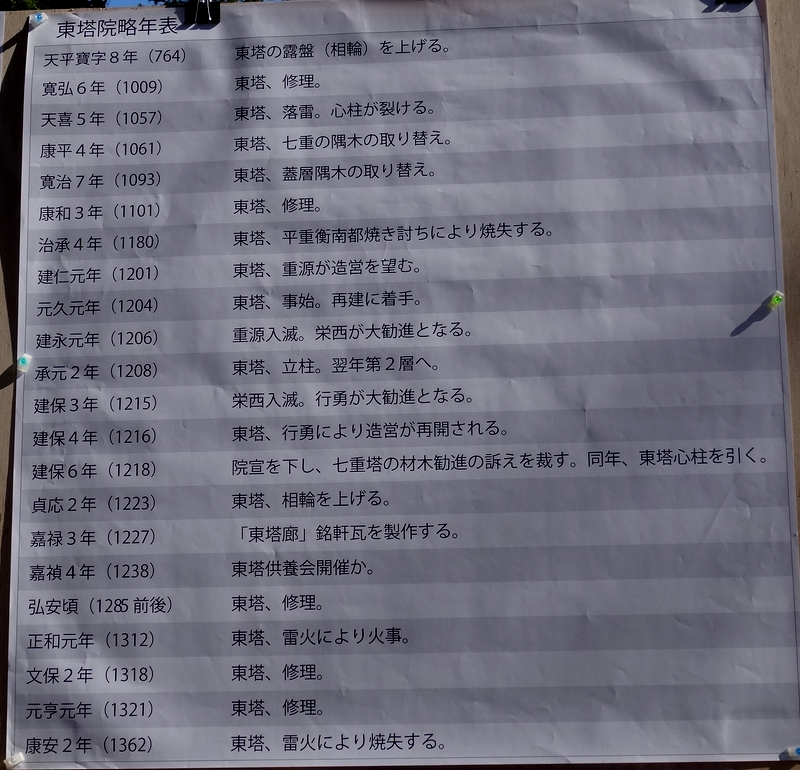 東塔院略年表
天平寶字８年（764） 東塔の露盤（相輪）を上げる。
寛弘６年（1009） 東塔、修理。
天喜５年（1057） 東塔、落雷。心柱が裂ける。
康平４年（1061） 東塔、七重の隅木の取り替え。
寛治７年（1093） 東塔、蓋層隅木の取り替え。
康和３年（1101） 東塔、修理。
治承４年（1180） 東塔、平重衡南都焼き討ちにより焼失する。
建仁元年（1201） 東塔、重源が造営を望む。
元久元年（1204） 東塔、事始。再建に着手。
建永元年（1206） 重源入滅。栄西が大勧進となる。
承元２年（1208） 東塔、立柱。翌年第２層へ。
建保３年（1215） 栄西入滅。行勇が大勧進となる。
建保４年（1216） 東塔、行勇により造営が再開される。
建保６年（1218） 院宣を下し、七重塔の材木勧進の訴えを裁す。同年、東塔心柱を引く。
貞応２年（1223） 東塔、相輪を上げる。
嘉禄３年（1227） 「東塔廊」銘軒瓦を製作する。
嘉禎４年（1238） 東塔供養会開催か。
弘安頃（1285 前後） 東塔、修理。
正和元年（1312） 東塔、雷火により火事。
文保２年（1318） 東塔、修理。
元亨元年（1321） 東塔、修理。
康安２年（1362） 東塔、雷火により焼失する。